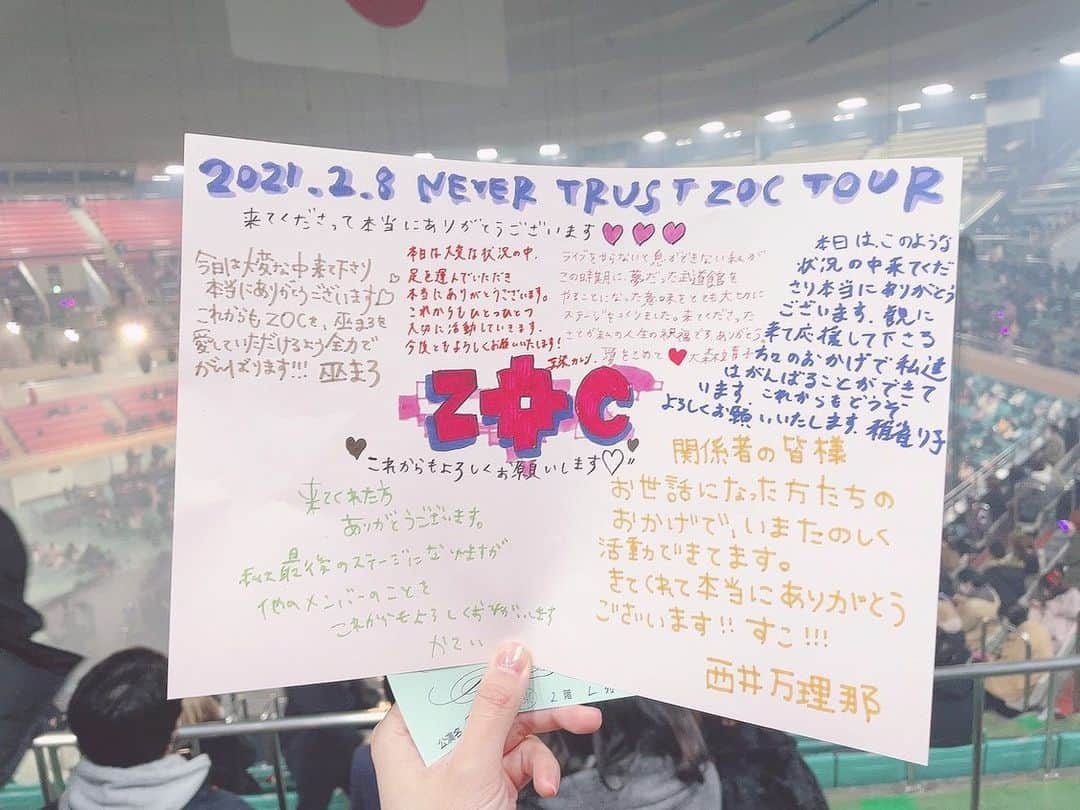 2021.2.8 NEVER TRUST ZOC TOUR
来てくださって本当にありがとうございます
今日は大変な中来て下さり
本当にありがとうございます♡
これからもZOCを、巫まろを
愛していただけるよう全力で
がんばります!!! 巫まろ
本日は大変な状況の中、
足を運んでいただき
本当にありがとうございます。
これからもひとつひとつ
大切に活動していきます。
今後ともよろしくお願いいたします!
ライブをやらないと息ができない私が
この時期に、夢だった武道館を
やることになった意味をとても大切に
ステージをつくりました。来てくださった
ことが私の人生の祝福です。ありがとう。
愛をこめて♥大森靖子
本日は、このような
状況の中来てくだ
さり本当にありがとう
ございます。観に
来て応援して下さる
方々のおかげで私達
はがんばることができて
います。これからもどうぞ
よろしくお願いいたします。雅雀り子
ZOC
これからもよろしくお願いします♡
来てくれた方
ありがとうございます。
最後のステージになりますが
他のメンバーのことを
これからもよろしくおねがいします
かてぃ
関係者の皆様
お世話になった方たちの
おかげで、いまたのしく
活動できてます。
きてくれて本当にありがとう
ございます!! すこ!!!
西井万理那
2階
公演名